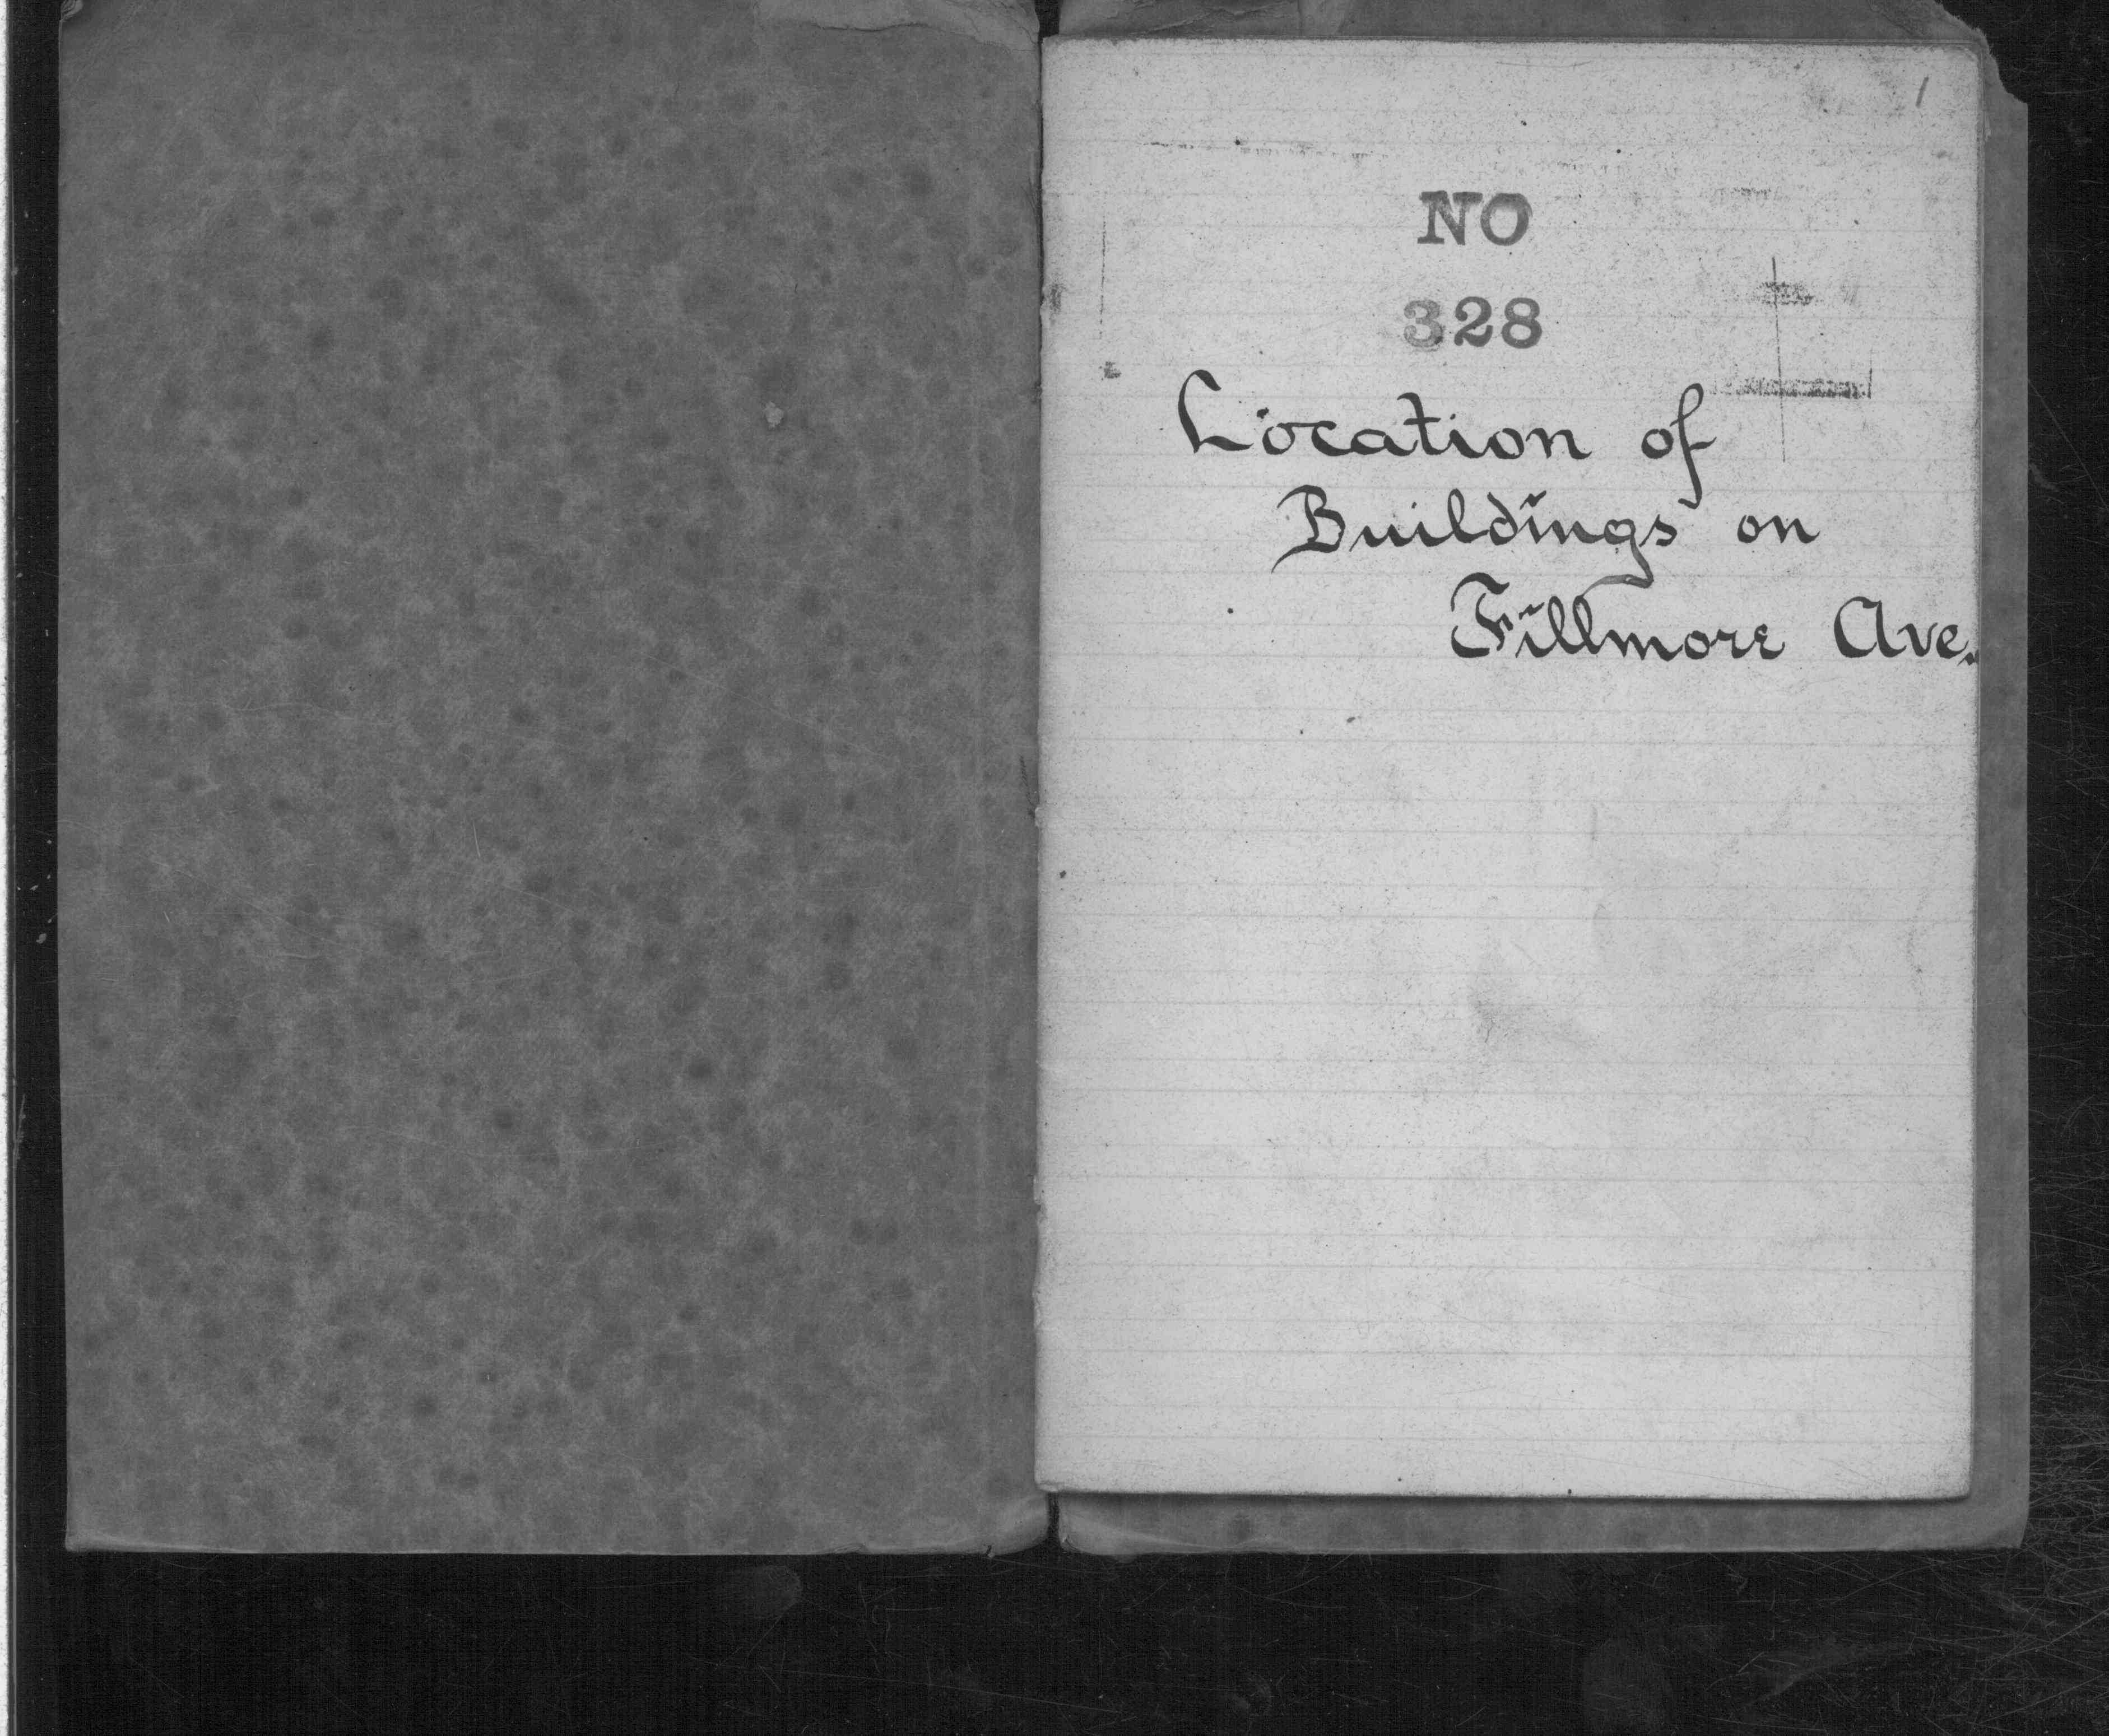 1
NO
328
Location of
Buildings on
Fillmore Ave.